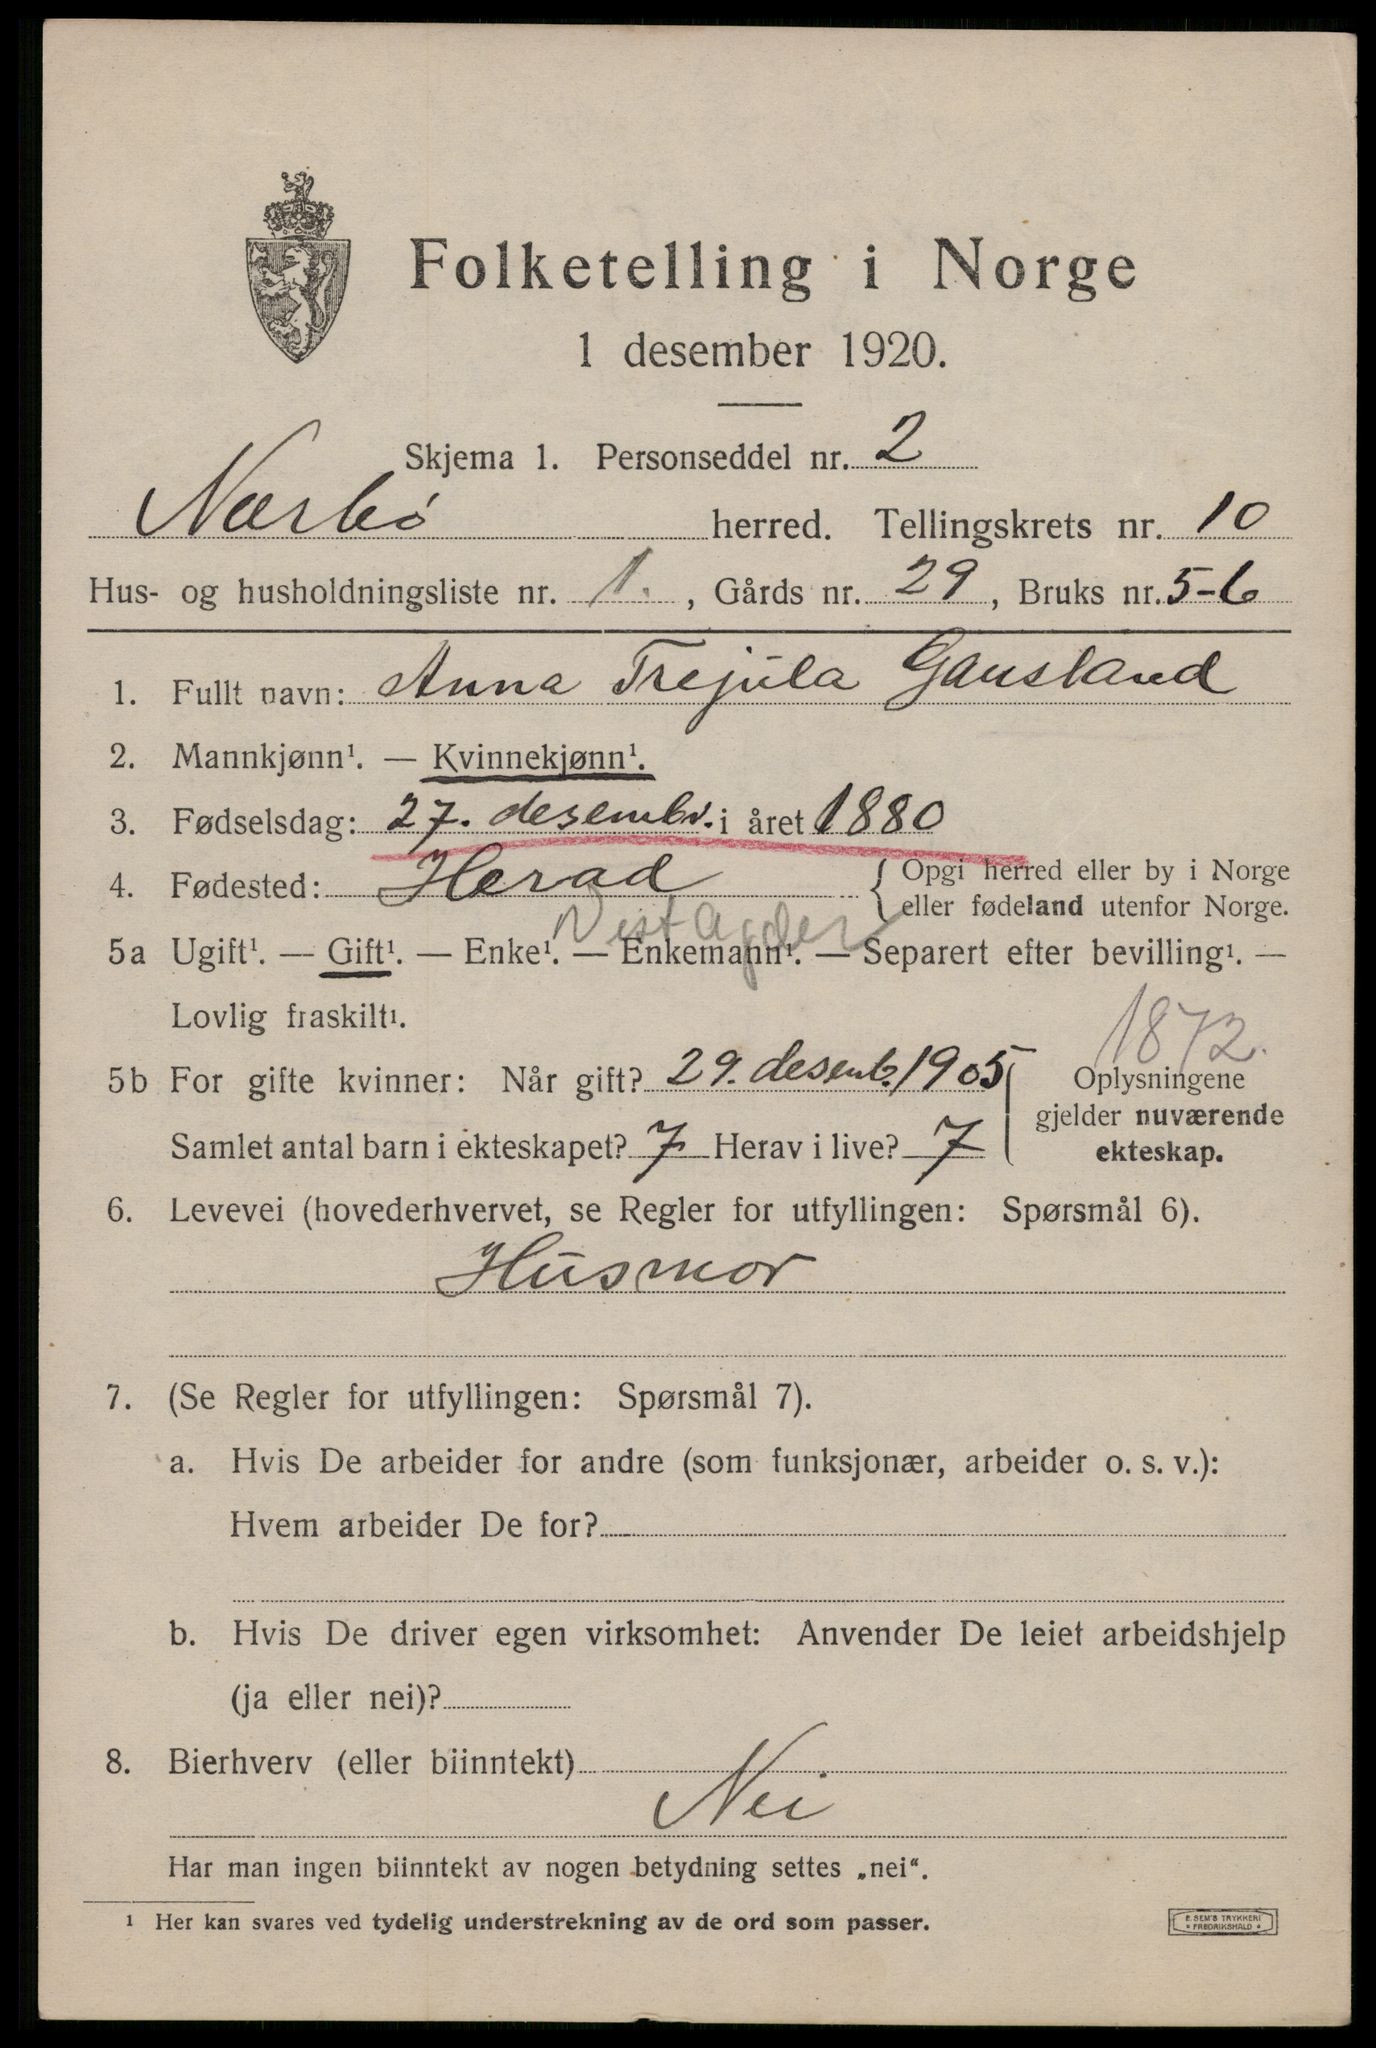 Folketelling i Norge
1 desember 1920.
Skjema 1. Personseddel nr. 2
Nærbø herred. Tellingskrets nr. 10
Hus- og husholdningsliste nr. 1., Gårds nr. 29, Bruks nr. 5-6
1. Fullt navn: Anna Trejula Gausland
2. Mannkjønn¹. — Kvinnekjønn¹.
3. Fødselsdag: 27. desembr. i året 1880
4. Fødested: Herad { Opgi herred eller by i Norge
eller fødeland utenfor Norge.
Vest Agder
5a Ugift¹. — Gift¹. — Enke¹. — Enkemann¹. — Separert efter bevilling¹. —
Lovlig fraskilt¹.
1872.
5b For gifte kvinner: Når gift? 29. desemb. 1905 Oplysningene
gjelder nuværende
Samlet antal barn i ekteskapet? 7 Herav i live? 7 ekteskap.
6. Levevei (hovederhvervet, se Regler for utfyllingen: Spørsmål 6).
Husmor
7. (Se Regler for utfyllingen: Spørsmål 7).
a. Hvis De arbeider for andre (som funksjonær, arbeider o. s. v.):
Hvem arbeider De for?
b. Hvis De driver egen virksomhet: Anvender De leiet arbeidshjelp
(ja eller nei)?
8. Bierhverv (eller biinntekt)
Nei
Har man ingen biinntekt av nogen betydning settes „nei“.
¹ Her kan svares ved tydelig understrekning av de ord som passer.
E. SEM'S TRYKKERI
FREDRIKSHALD